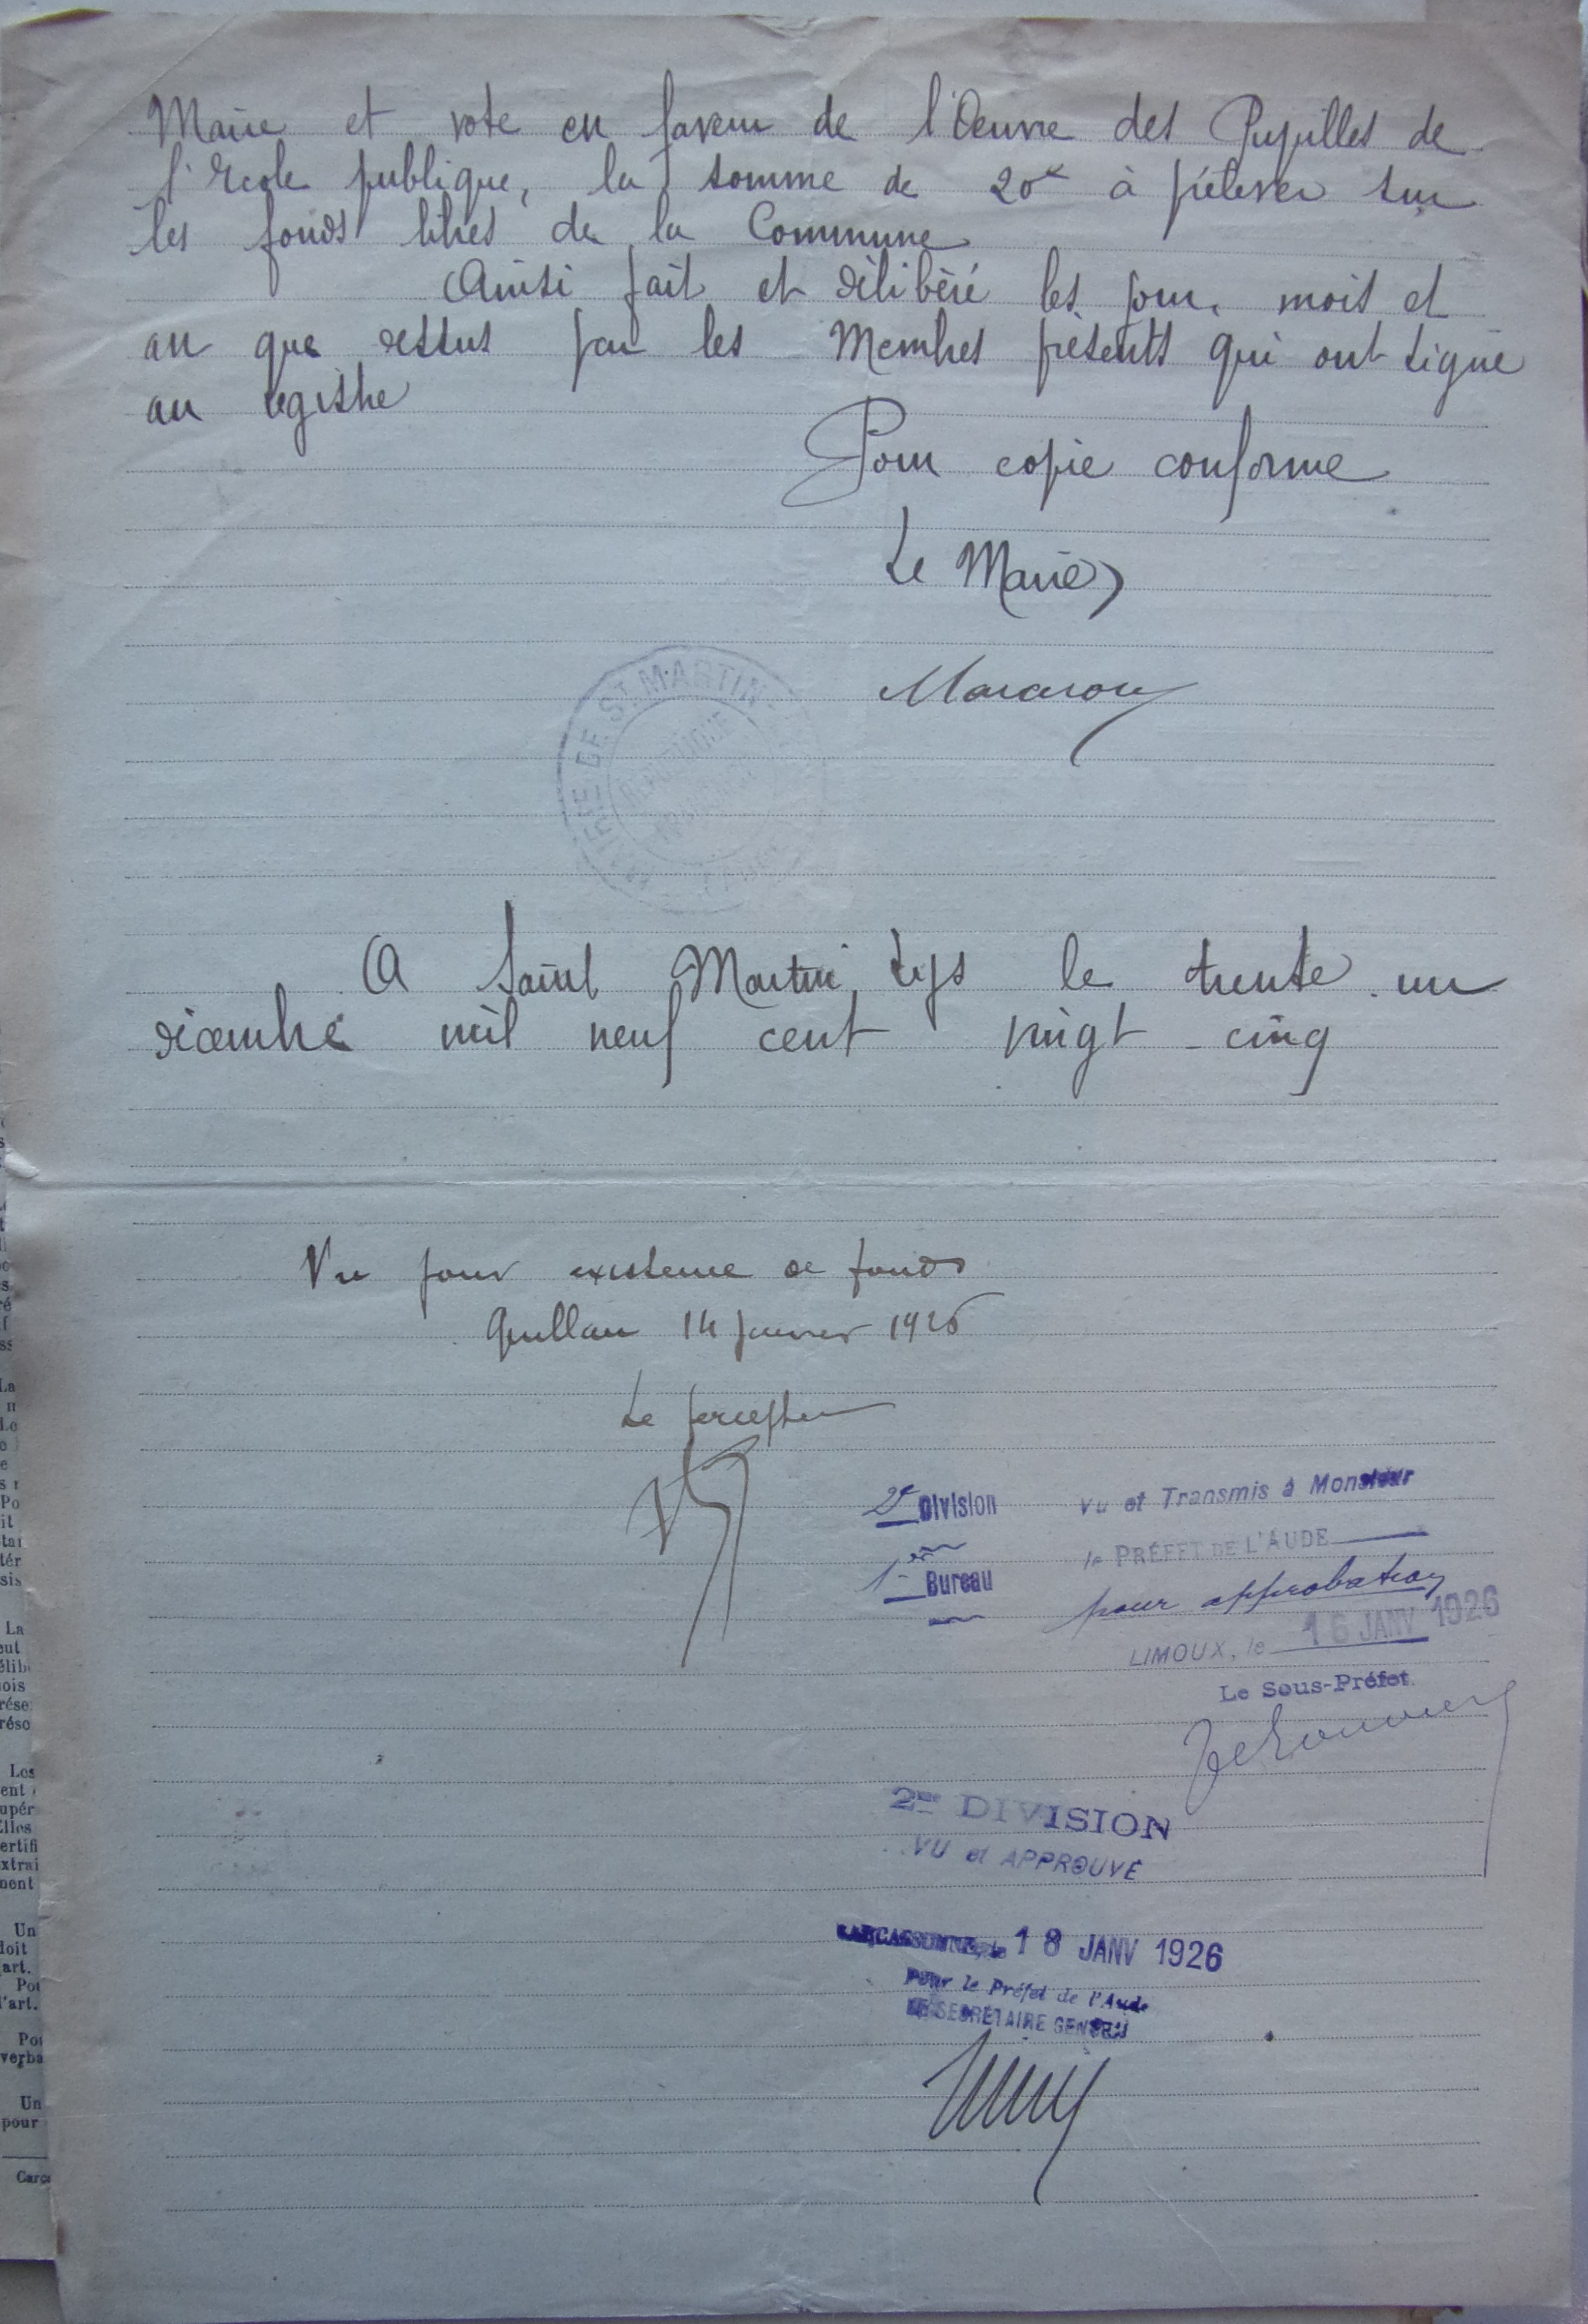 Maire et vote en faveur de l'Oeuvre des Pupilles de
l'Ecole publique, la somme de 20 à prélever sur
les fonds libres de la Commune
Ainsi fait et délibéré les jour, mois et
an que dessus par les Membres présents qui ont signé
au registre
Pour copie conforme
Le Maire,
MAIRIE DE ST. MARTIN
REPUBLIQUE
FRANÇAISE
A Saint Martin Lys le trente un
décembre mil neuf cent vingt-cinq
Vu pour existence de fonds
Quillan 14 janvier 1926
Le percepteur
2e Division
1er Bureau
Vu et Transmis à Monsieur
le PRÉFET DE L'AUDE
pour approbation
LIMOUX, le 16 JANV 1926
Le Sous-Préfet
2me DIVISION
VU et APPROUVÉ
CARCASSONNE, le 18 JANV 1926
Pour le Préfet de l'Aude
LE SECRÉTAIRE GENERAL